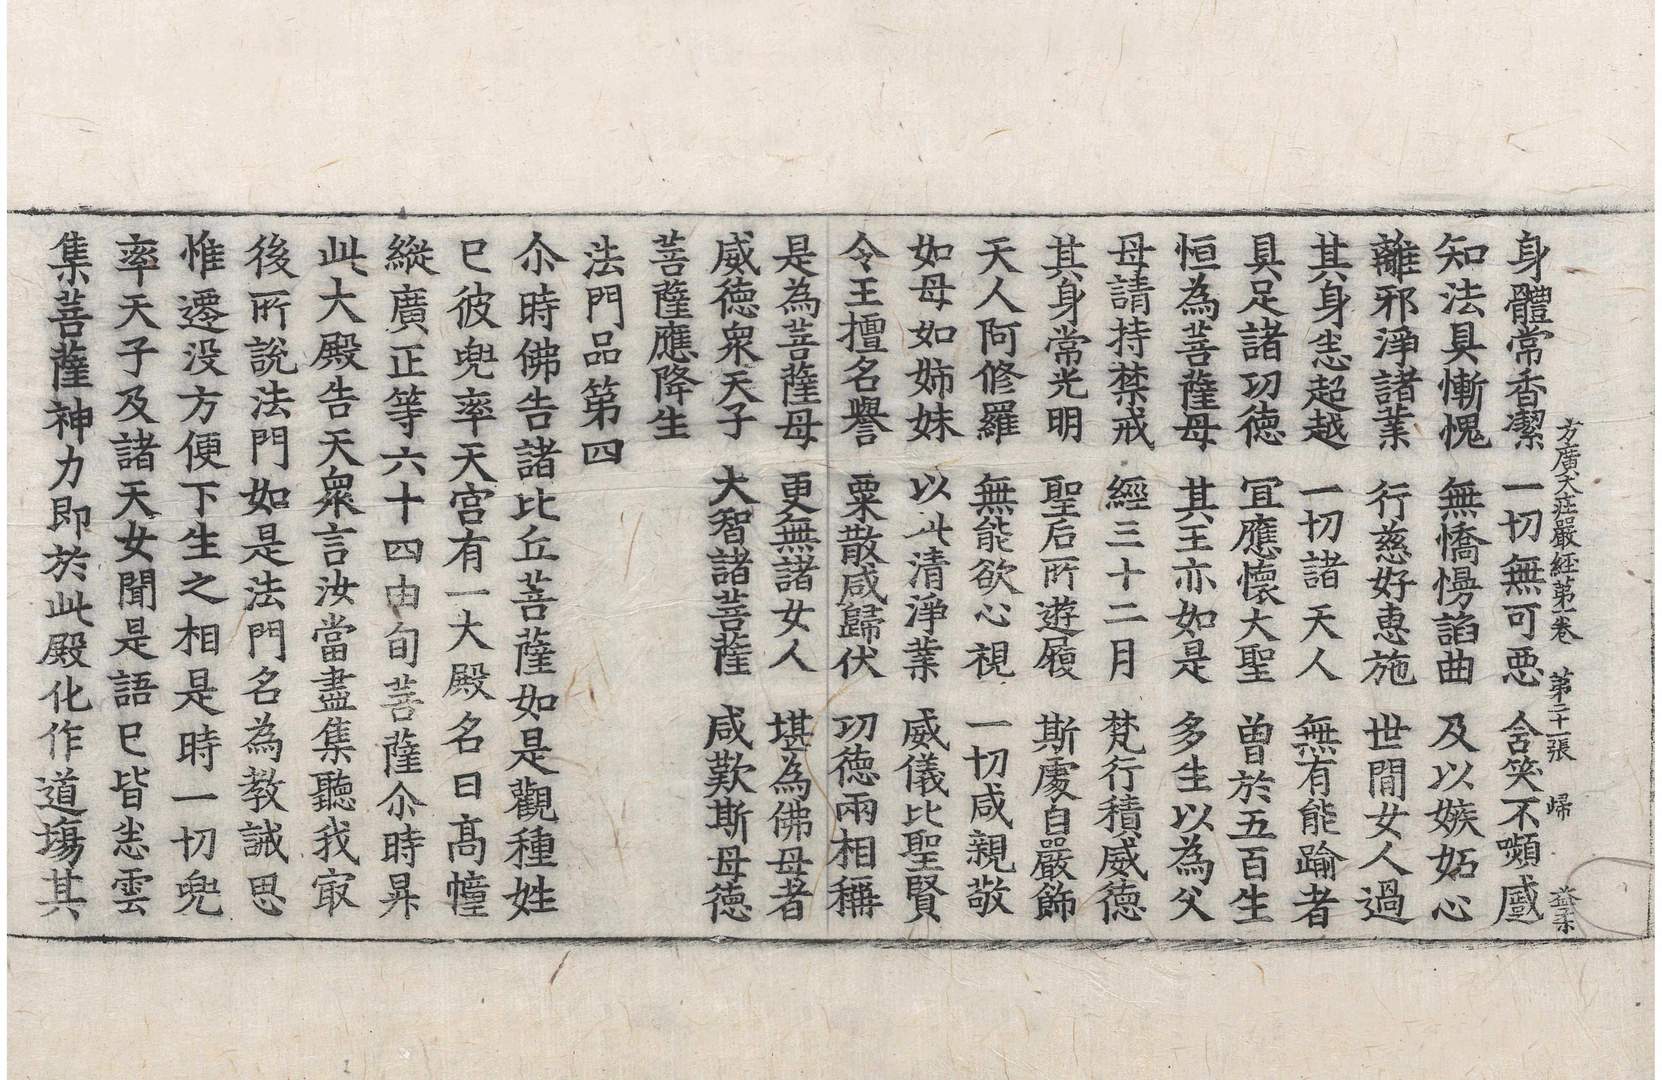 方廣大莊嚴經第一卷　第二十一張　歸　益柔
身體常香潔　一切無可惡　含笑不嚬慼
知法具慚愧　無憍慢諂曲　及以嫉妬心
離邪淨諸業　行慈好惠施　世間女人過
其身悉超越　一切諸天人　無有能踰者
具足諸功德　冝應懷大聖　曽於五百生
恒為菩薩母　其王亦如是　多生以為父
母請持禁戒　經三十二月　梵行積威德
其身常光明　聖后所遊履　斯處自嚴飾
天人阿修羅　無能欲心視　一切咸親敬
如母如姊妹　以此清淨業　威儀比聖賢
令王擅名譽　粟散咸歸伏　功德兩相稱
是為菩薩母　更無諸女人　堪為佛母者
威德衆天子　大智諸菩薩　咸歎斯母德
菩薩應降生
法門品第四
尒時佛告諸比丘菩薩如是觀種姓
已彼兜率天宮有一大殿名曰高幢
縱廣正等六十四由旬菩薩尒時昇
此大殿告天衆言汝當盡集聽我㝡
後所說法門如是法門名為教誡思
惟遷没方便下生之相是時一切兜
率天子及諸天女聞是語已皆悉雲
集菩薩神力即於此殿化作道塲其